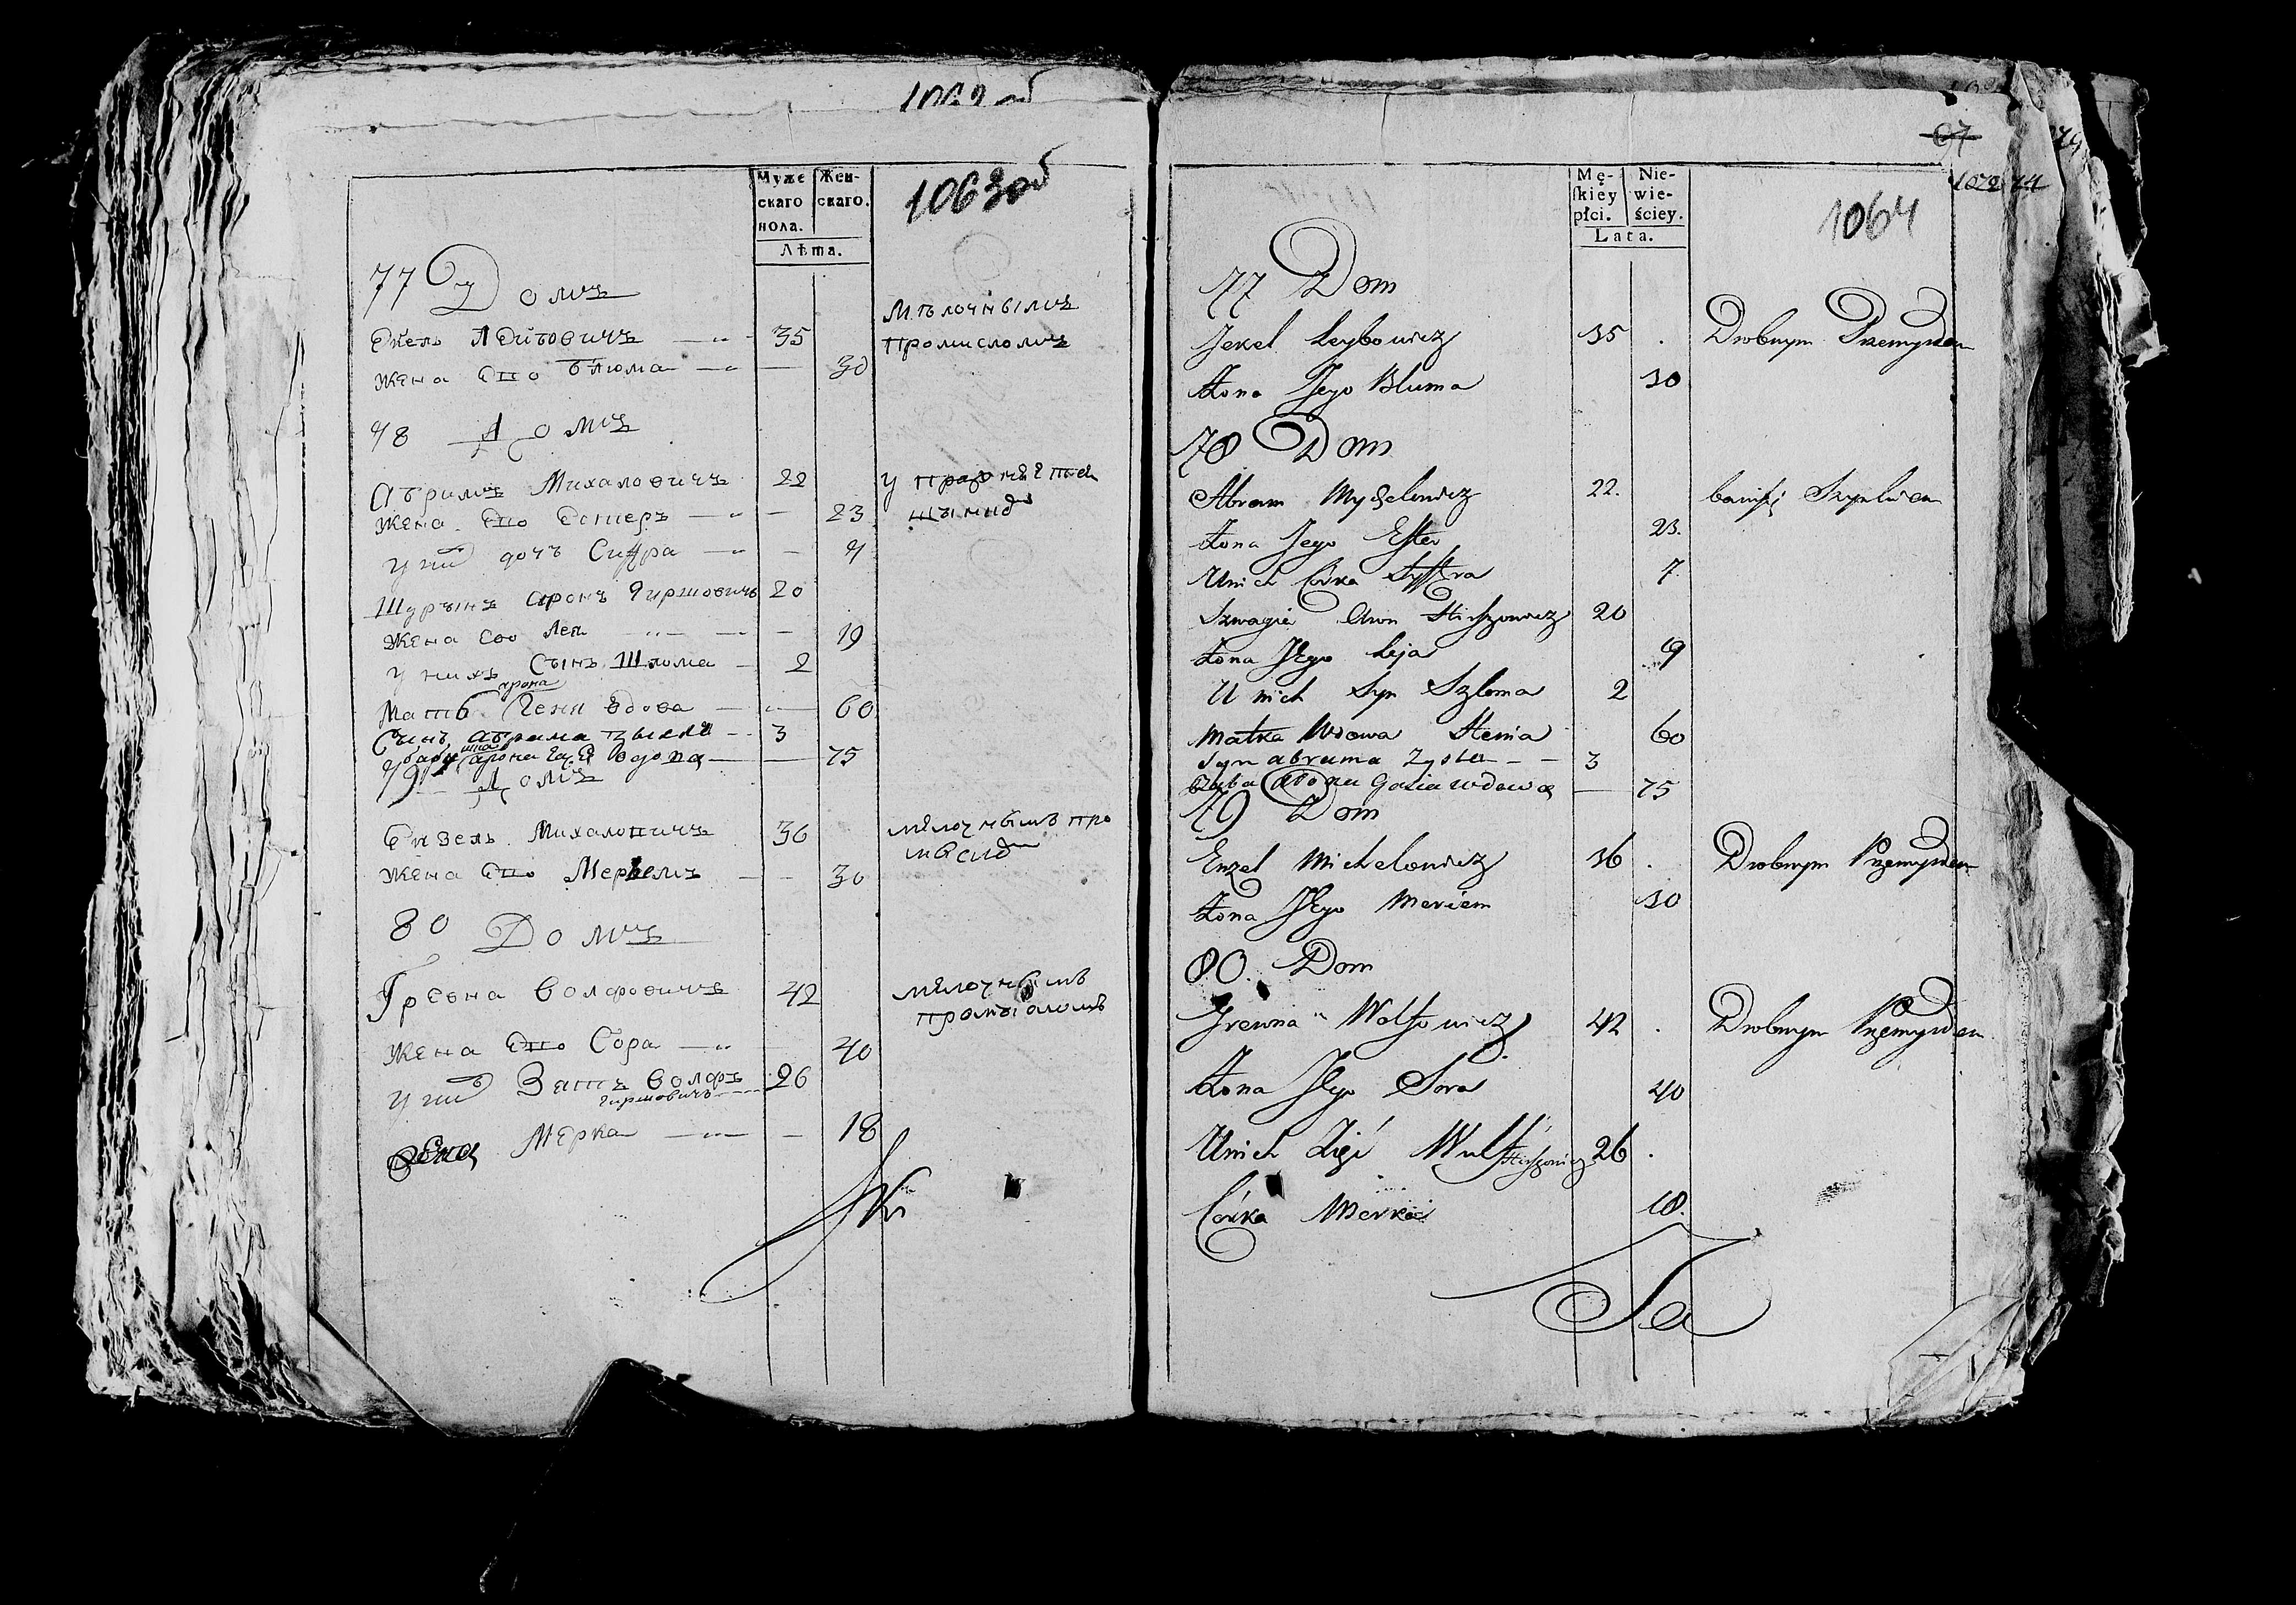 1063 об
Муже
скаго
пола.
Жен-
скаго.
Лѣта.
77 Домъ
Екель Лейбовичъ 35
мѣлочнымъ
промисломъ
Жена его Блюма 30
78 Домъ
Абрамъ Михаловичъ 22
Жена его Естеръ 23
у них дочъ Сифра 7
Шурынъ Аронъ Гиршовичъ 20
Жена его Лея 19
у нихъ Сынъ Шлома 2
арона
Мать Гени вдова 60
Сынъ абрама 3
арона вдова 75
79 Домъ
Ензель Михаловичъ 36
мѣлочнымъ про
Жена его Мерьемъ 30
80 Домъ
Гревна Волфовичъ 42
мѣлочнымъ
промысломъ
Жена его Сора 40
у них Зять Волфъ 26
Гиршовичъ
Мерка 18
67
1072 74
1064
Mę-
ſkiéy
płci.
Nie-
wie-
ściey.
Lata.
77 Dom
Jekel Leybowicz 35 Drobnym Przemysłem
Żona Jego Bluma 30
78 Dom
Abram Mychelowicz 22.
Żona Jego Ester 23.
U nich Córka Syffra 7.
Szwagier Aron Hirszowicz 20
Żona Jego Leja 9
U nich Syn Szloma 2
Matka Wdowa Henia 60
Syn abrama 3
Baba Arona Gasia wdowa 75
79 Dom
Enzel Michelowicz 36 Drobnym Przemysłem
Żona Jego Meriem 30
80. Dom
Grewna Wolfowicz 42 Drobnym Przemysłem
Żona Jego Sora 40
U nich Zięć Wulf Hirszowicz 26
Córka Merka 18.